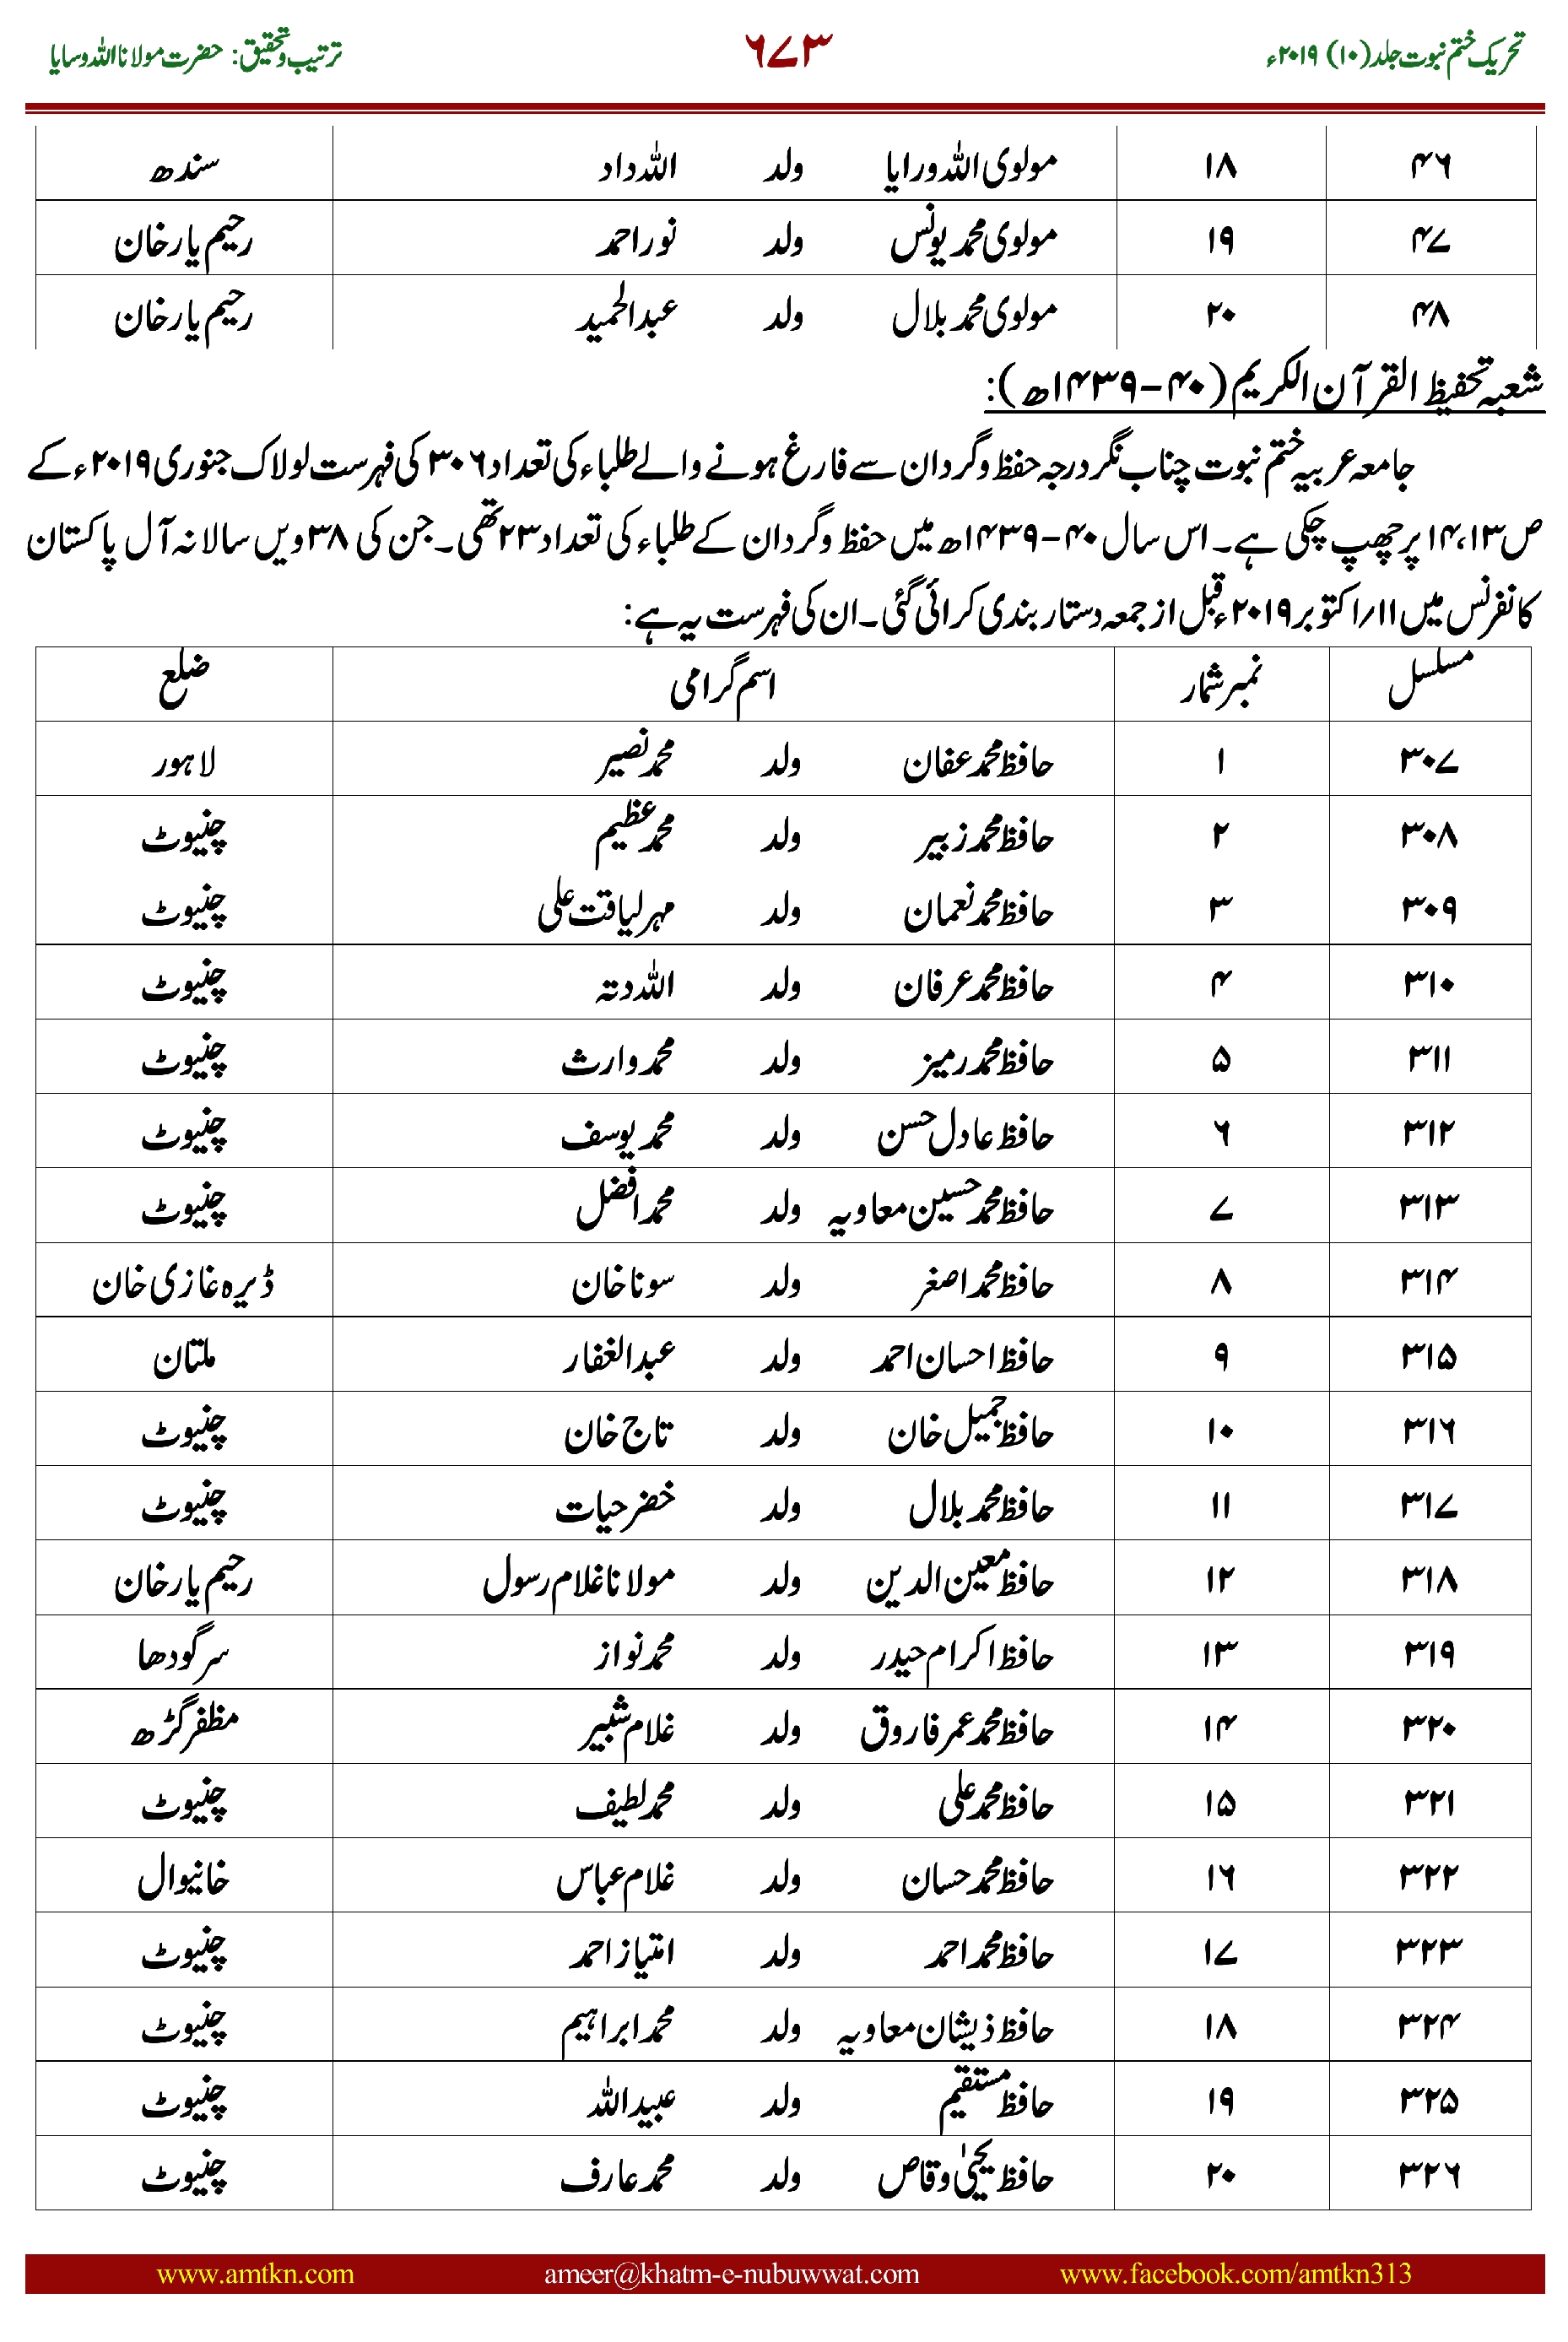 تحریک ختم نبوت جلد (۱۰) ۲۰۱۹ء ۶۷۳ ترتیب و تحقیق: حضرت مولانا اللہ وسایا
۴۶ ۱۸ مولوی اللہ ورایا ولد اللہ داد سندھ
۴۷ ۱۹ مولوی محمد یونس ولد نور احمد رحیم یار خان
۴۸ ۲۰ مولوی محمد بلال ولد عبدالحمید رحیم یار خان
شعبہ تحفیظ القرآن الکریم (۴۰-۱۴۳۹ھ):
جامعہ عربیہ ختم نبوت چناب نگر درجہ حفظ و گردان سے فارغ ہونے والے طلباء کی تعداد ۳۰۶ کی فہرست لولاک جنوری ۲۰۱۹ء کے
ص ۱۴،۱۳ پر چھپ چکی ہے۔ اس سال ۴۰-۱۴۳۹ھ میں حفظ و گردان کے طلباء کی تعداد ۲۳ تھی۔ جن کی ۳۸ ویں سالانہ آل پاکستان
کانفرنس میں ۱۱/اکتوبر ۲۰۱۹ء قبل از جمعہ دستار بندی کرائی گئی۔ ان کی فہرست یہ ہے:
مسلسل نمبر شمار اسم گرامی ضلع
۳۰۷ ۱ حافظ محمد عفان ولد محمد نصیر لاہور
۳۰۸ ۲ حافظ محمد زبیر ولد محمد عظیم چنیوٹ
۳۰۹ ۳ حافظ محمد نعمان ولد مہر لیاقت علی چنیوٹ
۳۱۰ ۴ حافظ محمد عرفان ولد اللہ دتہ چنیوٹ
۳۱۱ ۵ حافظ محمد رمیز ولد محمد وارث چنیوٹ
۳۱۲ ۶ حافظ عادل حسن ولد محمد یوسف چنیوٹ
۳۱۳ ۷ حافظ محمد حسین معاویہ ولد محمد افضل چنیوٹ
۳۱۴ ۸ حافظ محمد اصغر ولد سونا خان ڈیرہ غازی خان
۳۱۵ ۹ حافظ احسان احمد ولد عبدالغفار ملتان
۳۱۶ ۱۰ حافظ جمیل خان ولد تاج خان چنیوٹ
۳۱۷ ۱۱ حافظ محمد بلال ولد خضر حیات چنیوٹ
۳۱۸ ۱۲ حافظ معین الدین ولد مولانا غلام رسول رحیم یار خان
۳۱۹ ۱۳ حافظ اکرام حیدر ولد محمد نواز سرگودھا
۳۲۰ ۱۴ حافظ محمد عمر فاروق ولد غلام شبیر مظفر گڑھ
۳۲۱ ۱۵ حافظ محمد علی ولد محمد لطیف چنیوٹ
۳۲۲ ۱۶ حافظ محمد حسان ولد غلام عباس خانیوال
۳۲۳ ۱۷ حافظ محمد احمد ولد امتیاز احمد چنیوٹ
۳۲۴ ۱۸ حافظ ذیشان معاویہ ولد محمد ابراہیم چنیوٹ
۳۲۵ ۱۹ حافظ مستقیم ولد عبید اللہ چنیوٹ
۳۲۶ ۲۰ حافظ یحییٰ وقاص ولد محمد عارف چنیوٹ
www.amtkn.com ameer@khatm-e-nubuwwat.com www.facebook.com/amtkn313